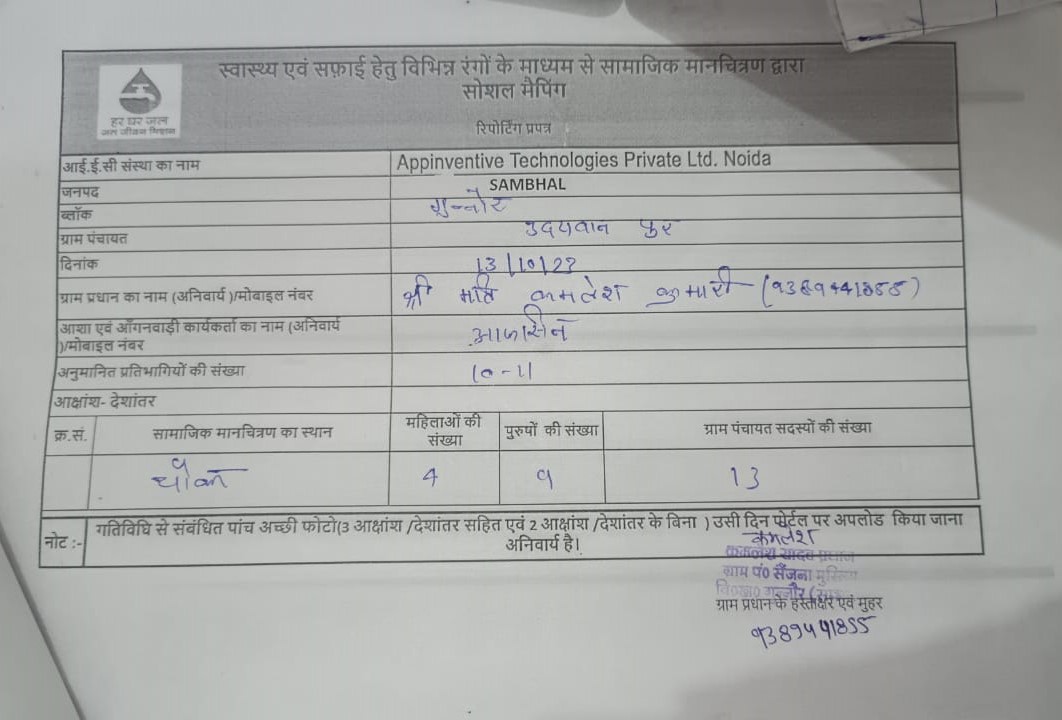 हर घर जल
जल जीवन मिशन
स्वास्थ्य एवं सफ़ाई हेतु विभिन्न रंगों के माध्यम से सामाजिक मानचित्रण द्वारा
सोशल मैपिंग
रिपोर्टिंग प्रपत्र
आई.ई.सी संस्था का नाम Appinventive Technologies Private Ltd. Noida
जनपद SAMBHAL
ब्लॉक गुन्नौर
ग्राम पंचायत उदयवान पुर
दिनांक 13/10/22
ग्राम प्रधान का नाम (अनिवार्य )/मोबाइल नंबर श्री मति कमलेश कुमारी (9389441855)
आशा एवं आँगनवाड़ी कार्यकर्ता का नाम (अनिवार्य
)/मोबाइल नंबर
अनुमानित प्रतिभागियों की संख्या 10-11
आक्षांश- देशांतर
क्र.सं. सामाजिक मानचित्रण का स्थान महिलाओं की संख्या पुरुषों की संख्या ग्राम पंचायत सदस्यों की संख्या
चौक 4 9 13
नोट :- गतिविधि से संबंधित पांच अच्छी फोटो(3 आक्षांश /देशांतर सहित एवं 2 आक्षांश /देशांतर के बिना ) उसी दिन पोर्टल पर अपलोड किया जाना
अनिवार्य है।
कमलेश
कमलेश यादव प्रधान
ग्राम पं० सैंजना मुस्लिम
वि०ख० गुन्नौर
ग्राम प्रधान के हस्ताक्षर एवं मुहर
9389441855